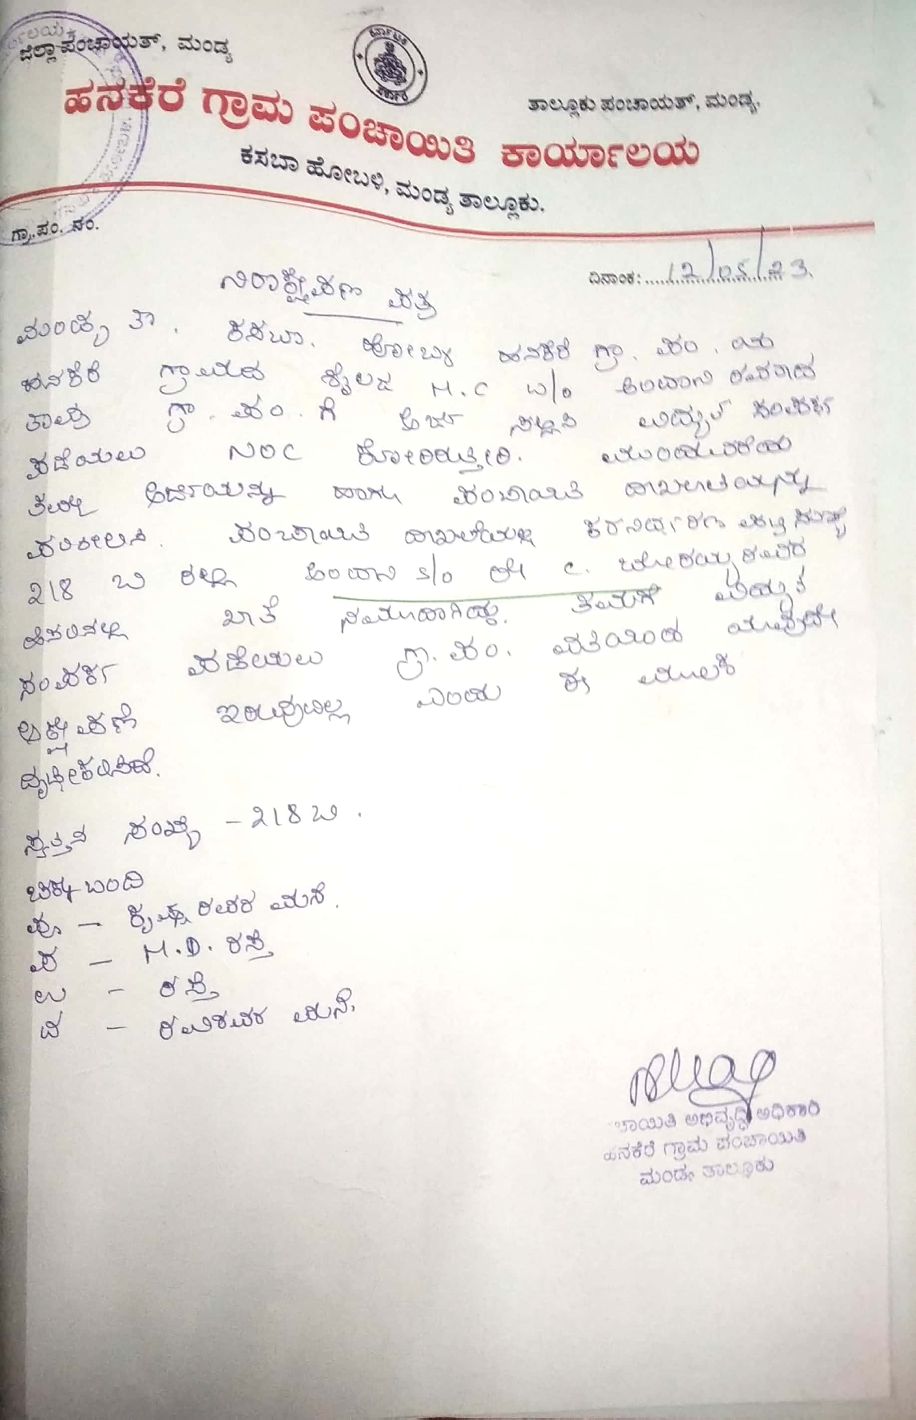 ಜಿಲ್ಲಾ ಪಂಚಾಯತ್, ಮಂಡ್ಯ
ತಾಲ್ಲೂಕು ಪಂಚಾಯತ್, ಮಂಡ್ಯ.
ಹನಕೆರೆ ಗ್ರಾಮ ಪಂಚಾಯಿತಿ ಕಾರ್ಯಾಲಯ
ಕಸಬಾ ಹೋಬಳಿ, ಮಂಡ್ಯ ತಾಲ್ಲೂಕು.
ಗ್ರಾ.ಪಂ. ನಂ.
ದಿನಾಂಕ: 12/05/23
ನಿರಾಕ್ಷೇಪಣ ಪತ್ರ
ಮಂಡ್ಯ ತಾ. ಕಸಬಾ. ಹೋಬಳಿ ಹನಕೆರೆ ಗ್ರಾ. ಪಂ. ಯ
ಹನಕೆರೆ ಗ್ರಾಮದ ಶೈಲಜ M.C w/o ರವರಾದ
ತಾವು ಗ್ರಾ. ಪಂ. ಗೆ ಅರ್ಜಿ ಸಲ್ಲಿಸಿ ವಿದ್ಯುತ್ ಸಂಪರ್ಕ
ಪಡೆಯಲು NOC ಕೋರಿರುತ್ತೀರಿ.
ಅರ್ಜಿಯನ್ನು ಹಾಗು ಪಂಚಾಯಿತಿ ದಾಖಲಾತಿಯನ್ನು
ಪರಿಶೀಲಿಸಿ. ಪಂಚಾಯಿತಿ ದಾಖಲೆಯಲ್ಲಿ ಕರನಿರ್ಧಾರಣ
218 ಬಿ ರಲ್ಲಿ s/o ಲೇ C.
ಹೆಸರಿನಲ್ಲಿ ಖಾತೆ ನಮೂದಾಗಿದ್ದು. ತಮಗೆ ವಿದ್ಯುತ್
ಸಂಪರ್ಕ ಪಡೆಯಲು ಗ್ರಾ. ಪಂ. ವತಿಯಿಂದ ಯಾವುದೇ
ಆಕ್ಷೇಪಣೆ ಇರುವುದಿಲ್ಲ ಎಂದು ಈ ಮೂಲಕ
ದೃಢೀಕರಿಸಿದೆ.
ಸ್ವತ್ತಿನ ಸಂಖ್ಯೆ - 218 ಬಿ.
ಚಕ್ಕುಬಂದಿ
ಪೂ - ಕೃಷ್ಣ ರವರ ಮನೆ.
ಪ - M.D. ರಸ್ತೆ
ಉ - ರಸ್ತೆ
ದ - ರವಿರವರ ಮನೆ.
ಚಾಯಿತಿ ಅಭಿವೃದ್ಧಿ ಅಧಿಕಾರಿ
ಹನಕೆರೆ ಗ್ರಾಮ ಪಂಚಾಯಿತಿ
ಮಂಡ್ಯ ತಾಲ್ಲೂಕು